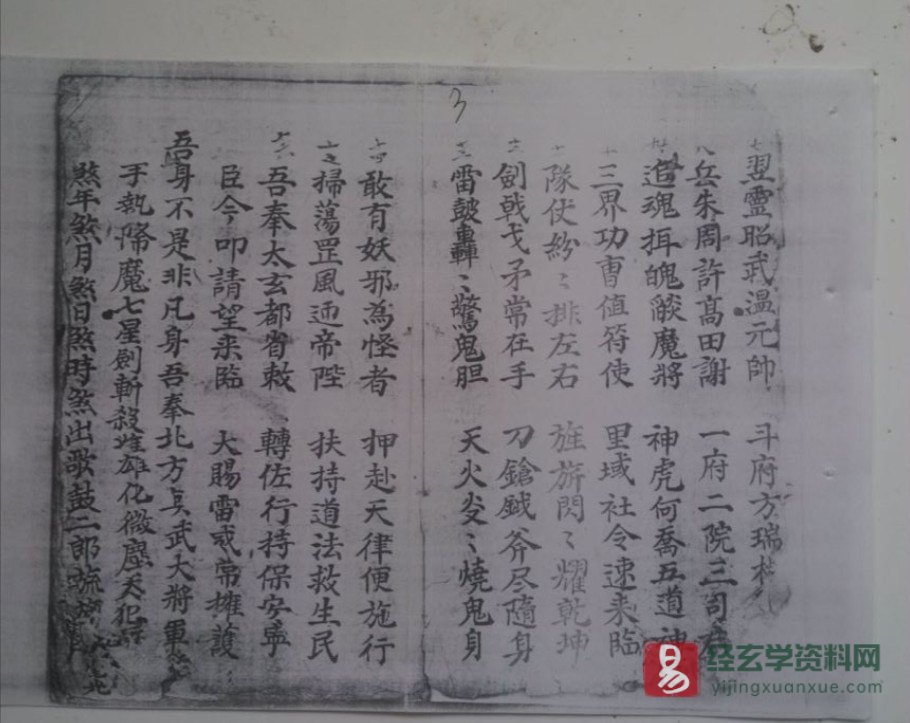 3
翌靈昭武溫元帥 斗府方瑞
岳朱周許髙田謝 一府二院三司
追魂捉魄燄魔將 神虎何喬五道神
三界功曺值符使 里域社令速来臨
隊仗紛〻排左右 旌旂閃〻耀乾坤
劍戟戈矛常在手 刀鎗鉞斧尽隨身
雷皷轟〻驚鬼胆 天火炎〻燒鬼身
敢有妖邪為怪者 押赴天律便施行
掃蕩罡風迊帝陛 扶持道法救生民
吾奉太玄都省敕 轉佐行持保安寧
臣今叩請望来臨 大賜雷威常擁護
吾身不是非凡身吾奉北方真武大將軍
手執降魔七星劍斬殺雄化微塵天犯
煞年煞月煞日煞時煞出歌鼓二郎
易
经玄学资料网
yijingxuanxue.com